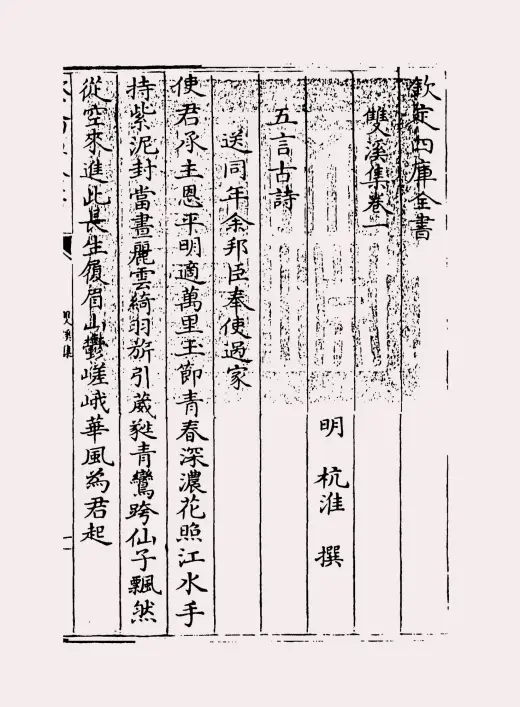 欽定四庫全書
雙溪集卷一
明 杭淮 撰
五言古詩
送同年余邦臣奉使過家
使君承主恩平明適萬里玉節青春深濃花照江水手
持紫泥封當晝麗雲綺羽旂引葳蕤青鸞跨仙子飄然
從空來進此長生履眉山鬱嵯峨華風為君起
雙溪集